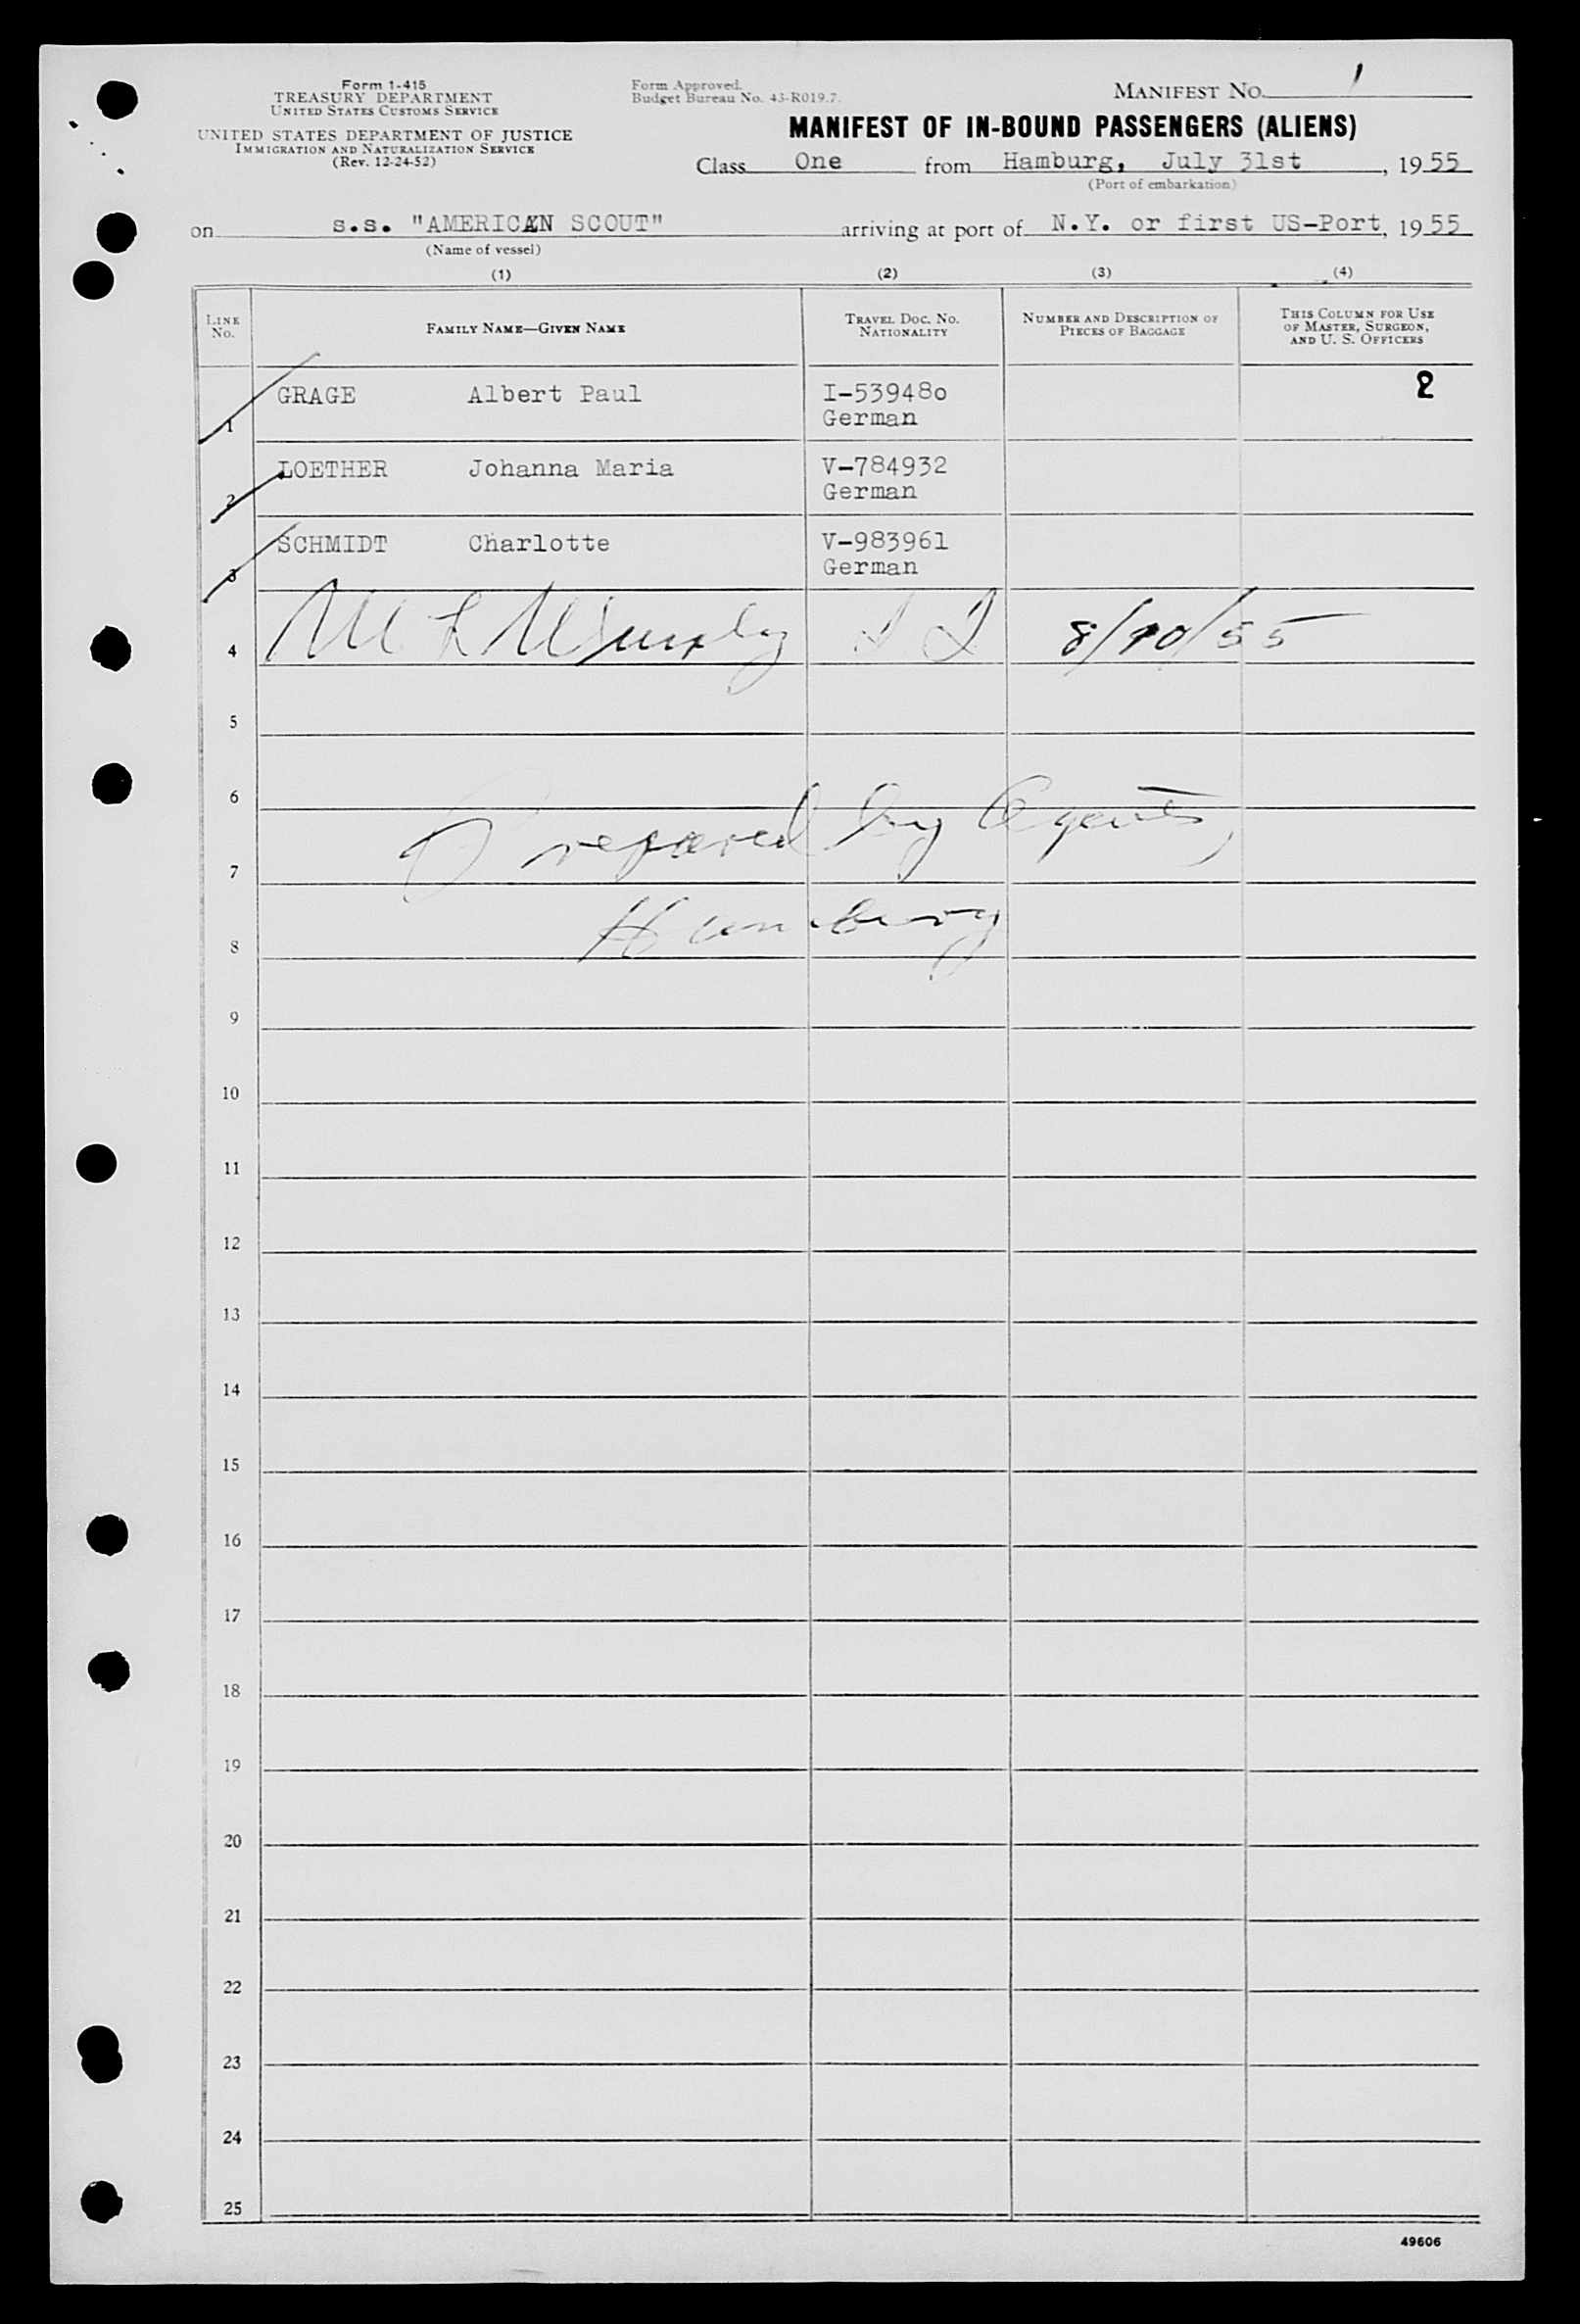 Form 1-415
TREASURY DEPARTMENT
UNITED STATES CUSTOMS SERVICE
UNITED STATES DEPARTMENT OF JUSTICE
IMMIGRATION AND NATURALIZATION SERVICE
(Rev. 12-24-52)
Form Approved.
Budget Bureau No. 43-R019.7.
MANIFEST NO. 1
MANIFEST OF IN-BOUND PASSENGERS (ALIENS)
Class One from Hamburg, July 31st, 1955
(Port of embarkation)
on s.s. "AMERICAN SCOUT" arriving at port of N.Y. or first US-Port, 1955
(Name of vessel)
(1) (2) (3) (4)
LINE No. FAMILY NAME—GIVEN NAME TRAVEL DOC. NO. NATIONALITY NUMBER AND DESCRIPTION OF PIECES OF BAGGAGE THIS COLUMN FOR USE OF MASTER, SURGEON, AND U. S. OFFICERS
1 GRAGE Albert Paul I-539480 2
German
2 LOETHER Johanna Maria V-784932
German
3 SCHMIDT Charlotte V-983961
German
4 8/10/55
5
6
7 Prepared by Agents,
8 Hamburg
9
10
11
12
13
14
15
16
17
18
19
20
21
22
23
24
25
49606